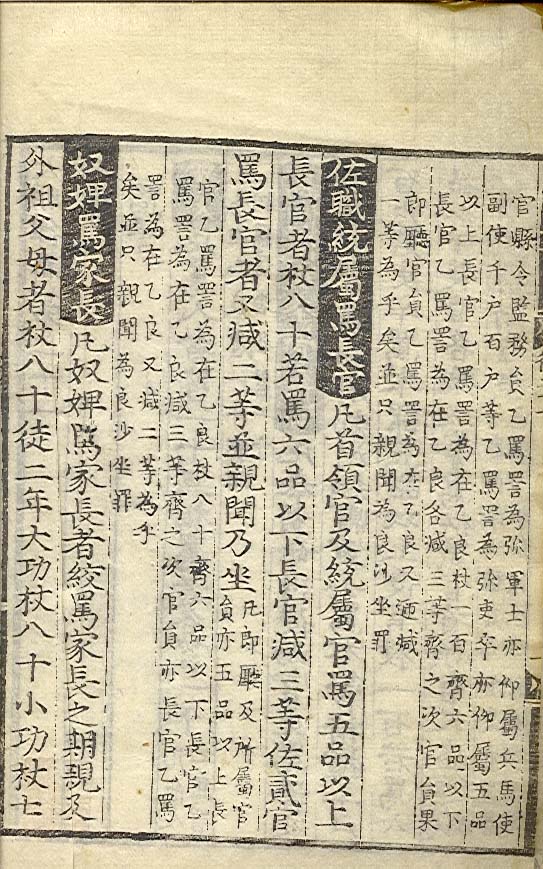 官縣令監務員乙罵詈爲弥軍士亦仰屬兵馬使
副使千户百户等乙罵詈爲弥吏卒亦仰屬五品
以上長官乙罵詈為在乙良杖一百齊六品以下
長官乙罵詈為在乙良各减三等齊之次官員果
即廳官員乙罵詈为在乙良又逓减
一等為乎矣並只親聞為良沙坐罪
佐職統屬罵長官凡首領官及統屬官罵五品以上
長官者杖八十若罵六品以下長官减三等佐貳官
罵長官者又减二等並親聞乃坐凡即廳及所屬官
員亦五品以上長
官乙罵詈為在乙良杖八十齊六品以下長官乙
罵詈為在乙良减三等齊之次官員亦長官乙罵
詈為在乙良又减二等為乎
矣並只親聞為良沙坐罪
奴婢罵家長凡奴婢罵家長者絞罵家長之期親及
外祖父母者杖八十徒二年大功杖八十小功杖七